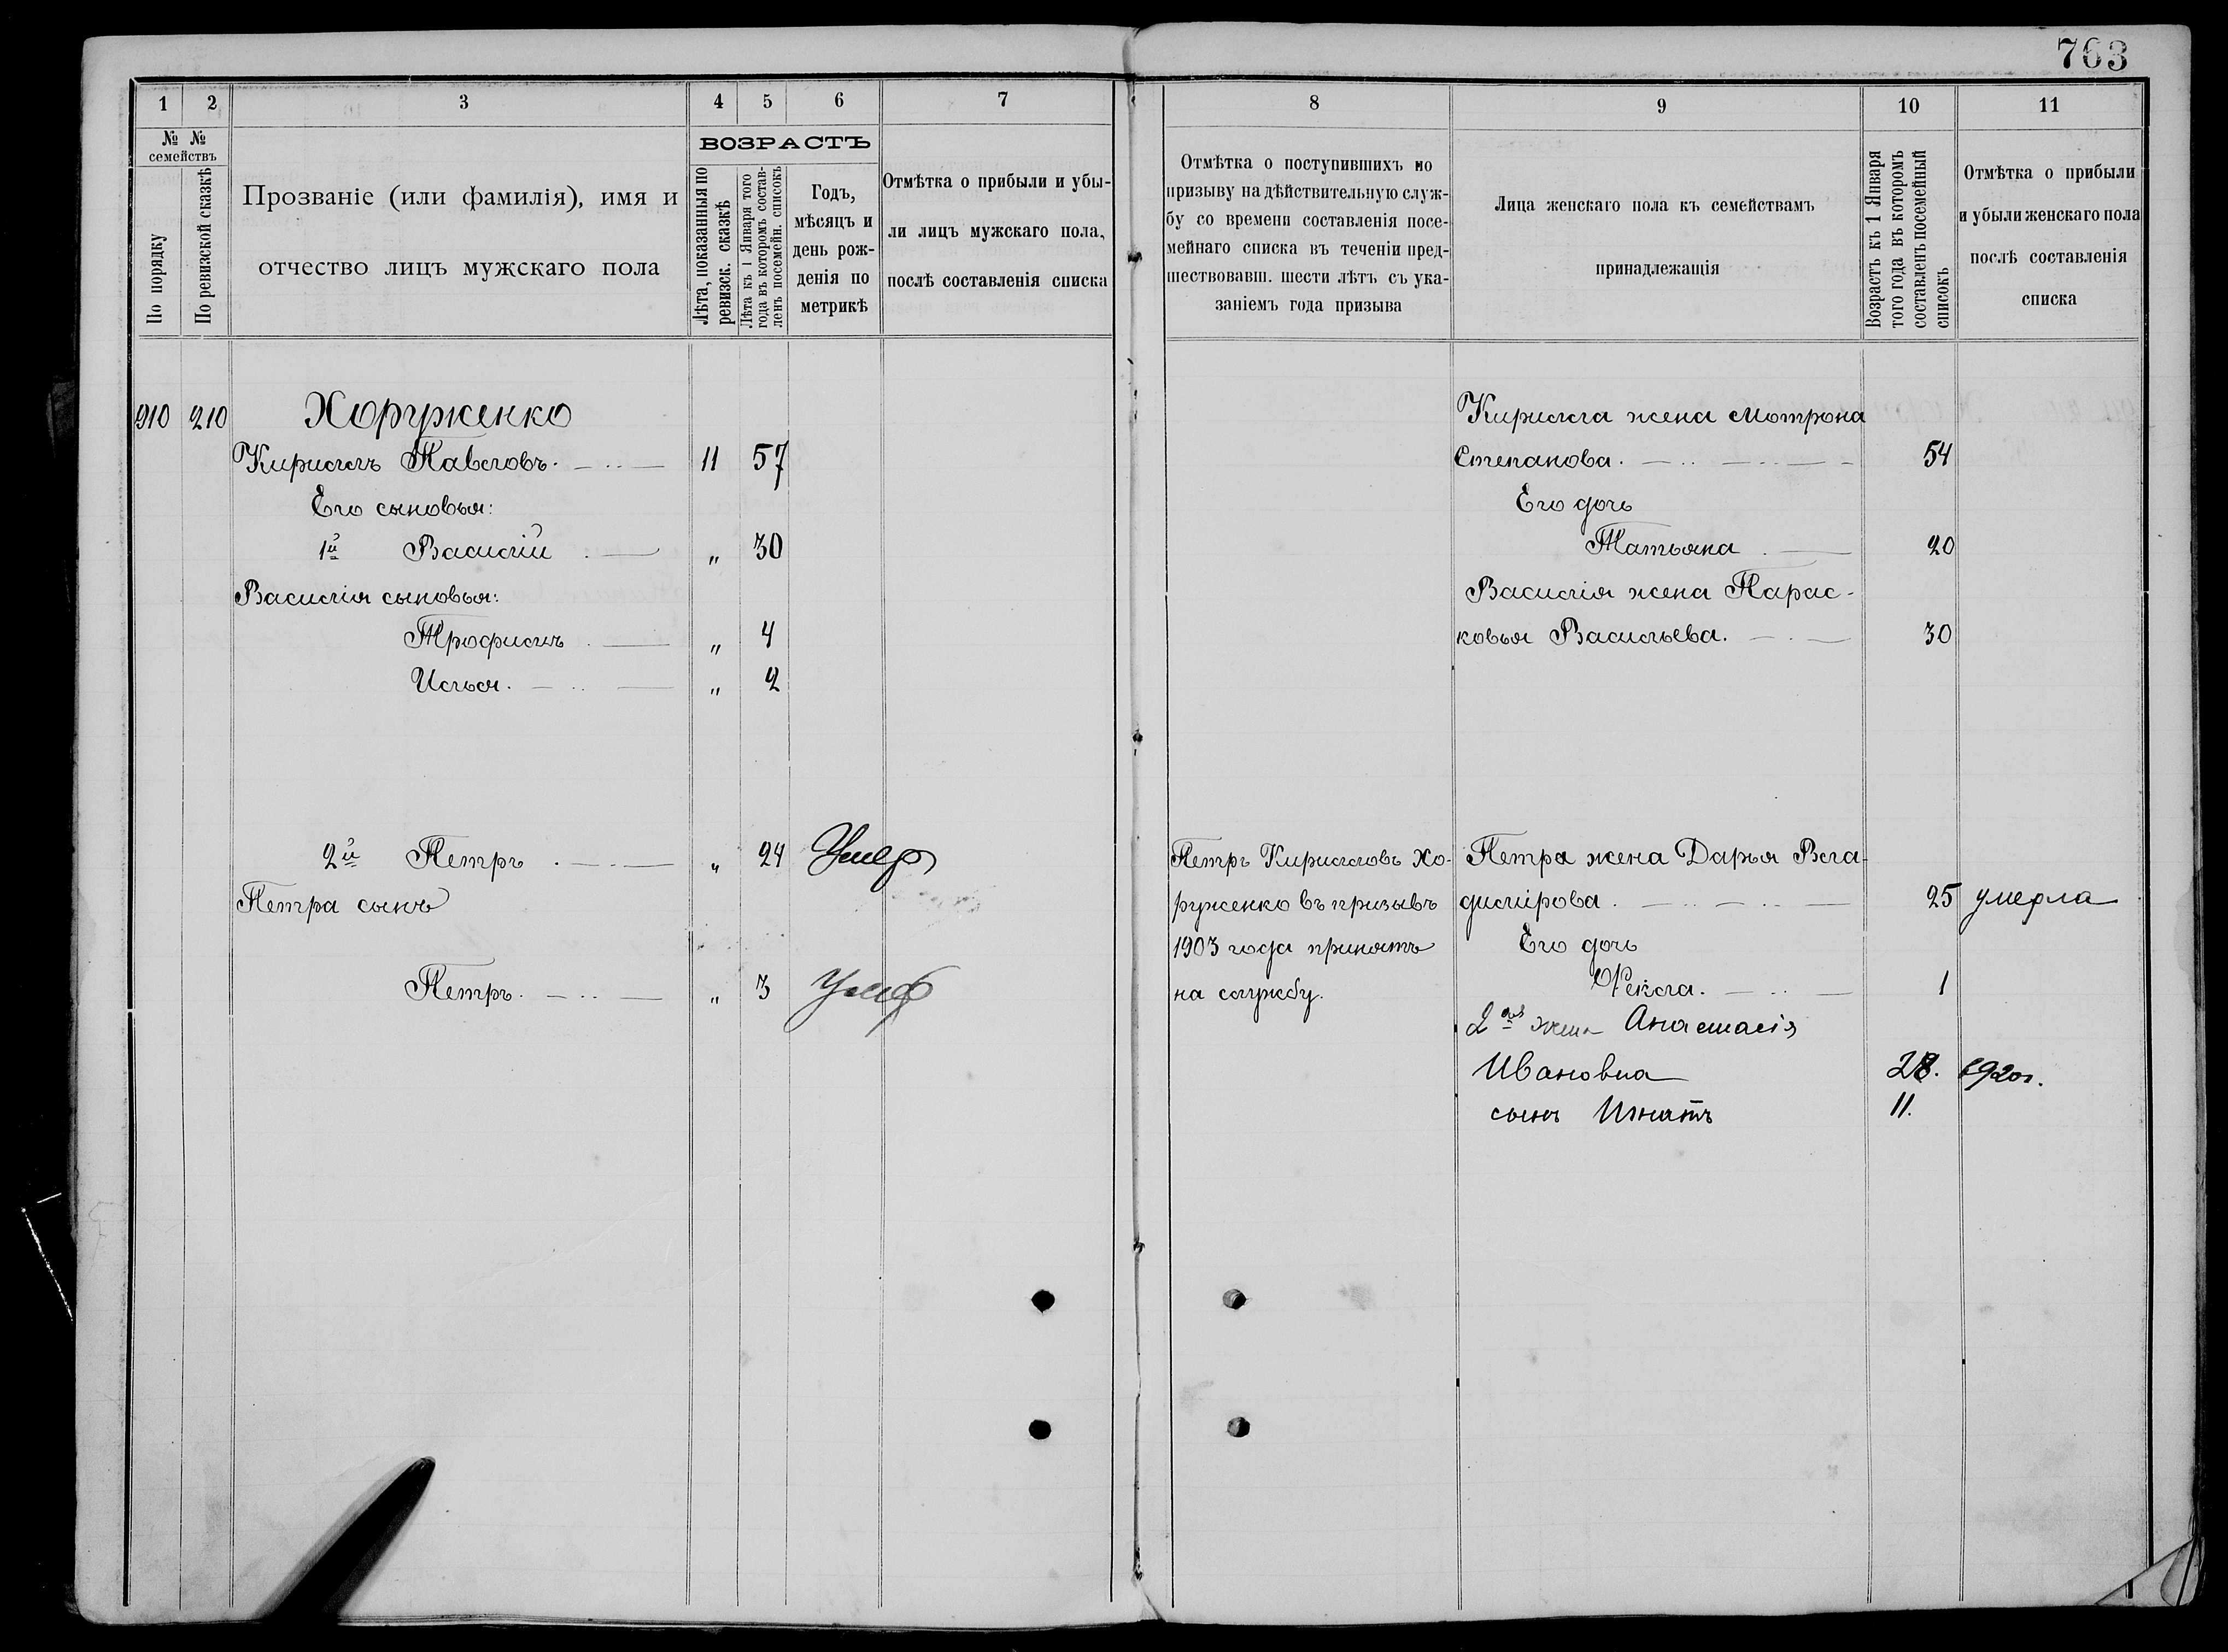 763
1 2 3 4 5 6 7
№ № семействъ
По порядку
По ревизской сказкѣ
Прозваніе (или фамилія), имя и
отчество лицъ мужскаго пола
ВОЗРАСТЪ
Лѣта, показанныя по
ревизск. сказкѣ
Лѣта къ 1 Января того
года въ которомъ состав-
ленъ посемейн. списокъ
Годъ,
мѣсяцъ и
день рож-
денія по
метрикѣ
Отмѣтка о прибыли и убы-
ли лицъ мужскаго пола,
послѣ составленія списка
910 210 Хоруженко
Кириллъ Павловъ. 11 57
Его сыновья:
1й Василій " 30
Василія сыновья:
Трофимъ " 4
Илья. " 2
2й Петръ " 24 Умеръ
Петра сынъ
Петръ. " 3 Умеръ
8 9 10 11
Отмѣтка о поступившихъ по
призыву на дѣйствительную служ-
бу со времени составленія посе-
мейнаго списка въ теченіи пред-
шествовавш. шести лѣтъ съ ука-
заніемъ года призыва
Лица женскаго пола къ семействамъ
принадлежащія
Возрастъ къ 1 Января
того года въ которомъ
составленъ посемейный
списокъ
Отмѣтка о прибыли
и убыли женскаго пола
послѣ составленія
списка
Кирилла жена Мотрона
Степанова. 54
Его дочь
Татьяна 20
Василія жена Парас-
ковья Васильева. 30
Петръ Кирилловъ Хо-
руженко въ призывъ
1903 года принятъ
на службу.
Петра жена Дарья Вла-
димірова. 25 умерла
Его дочь
Фекла. 1
2ая жена Анастасія
Ивановна 28. 1920г.
сынъ Игнатъ 11.